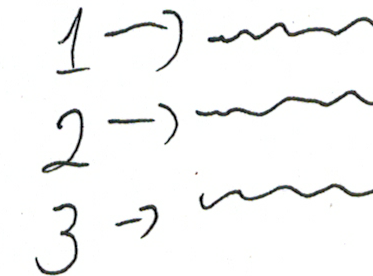 1 →
2 →
3 →